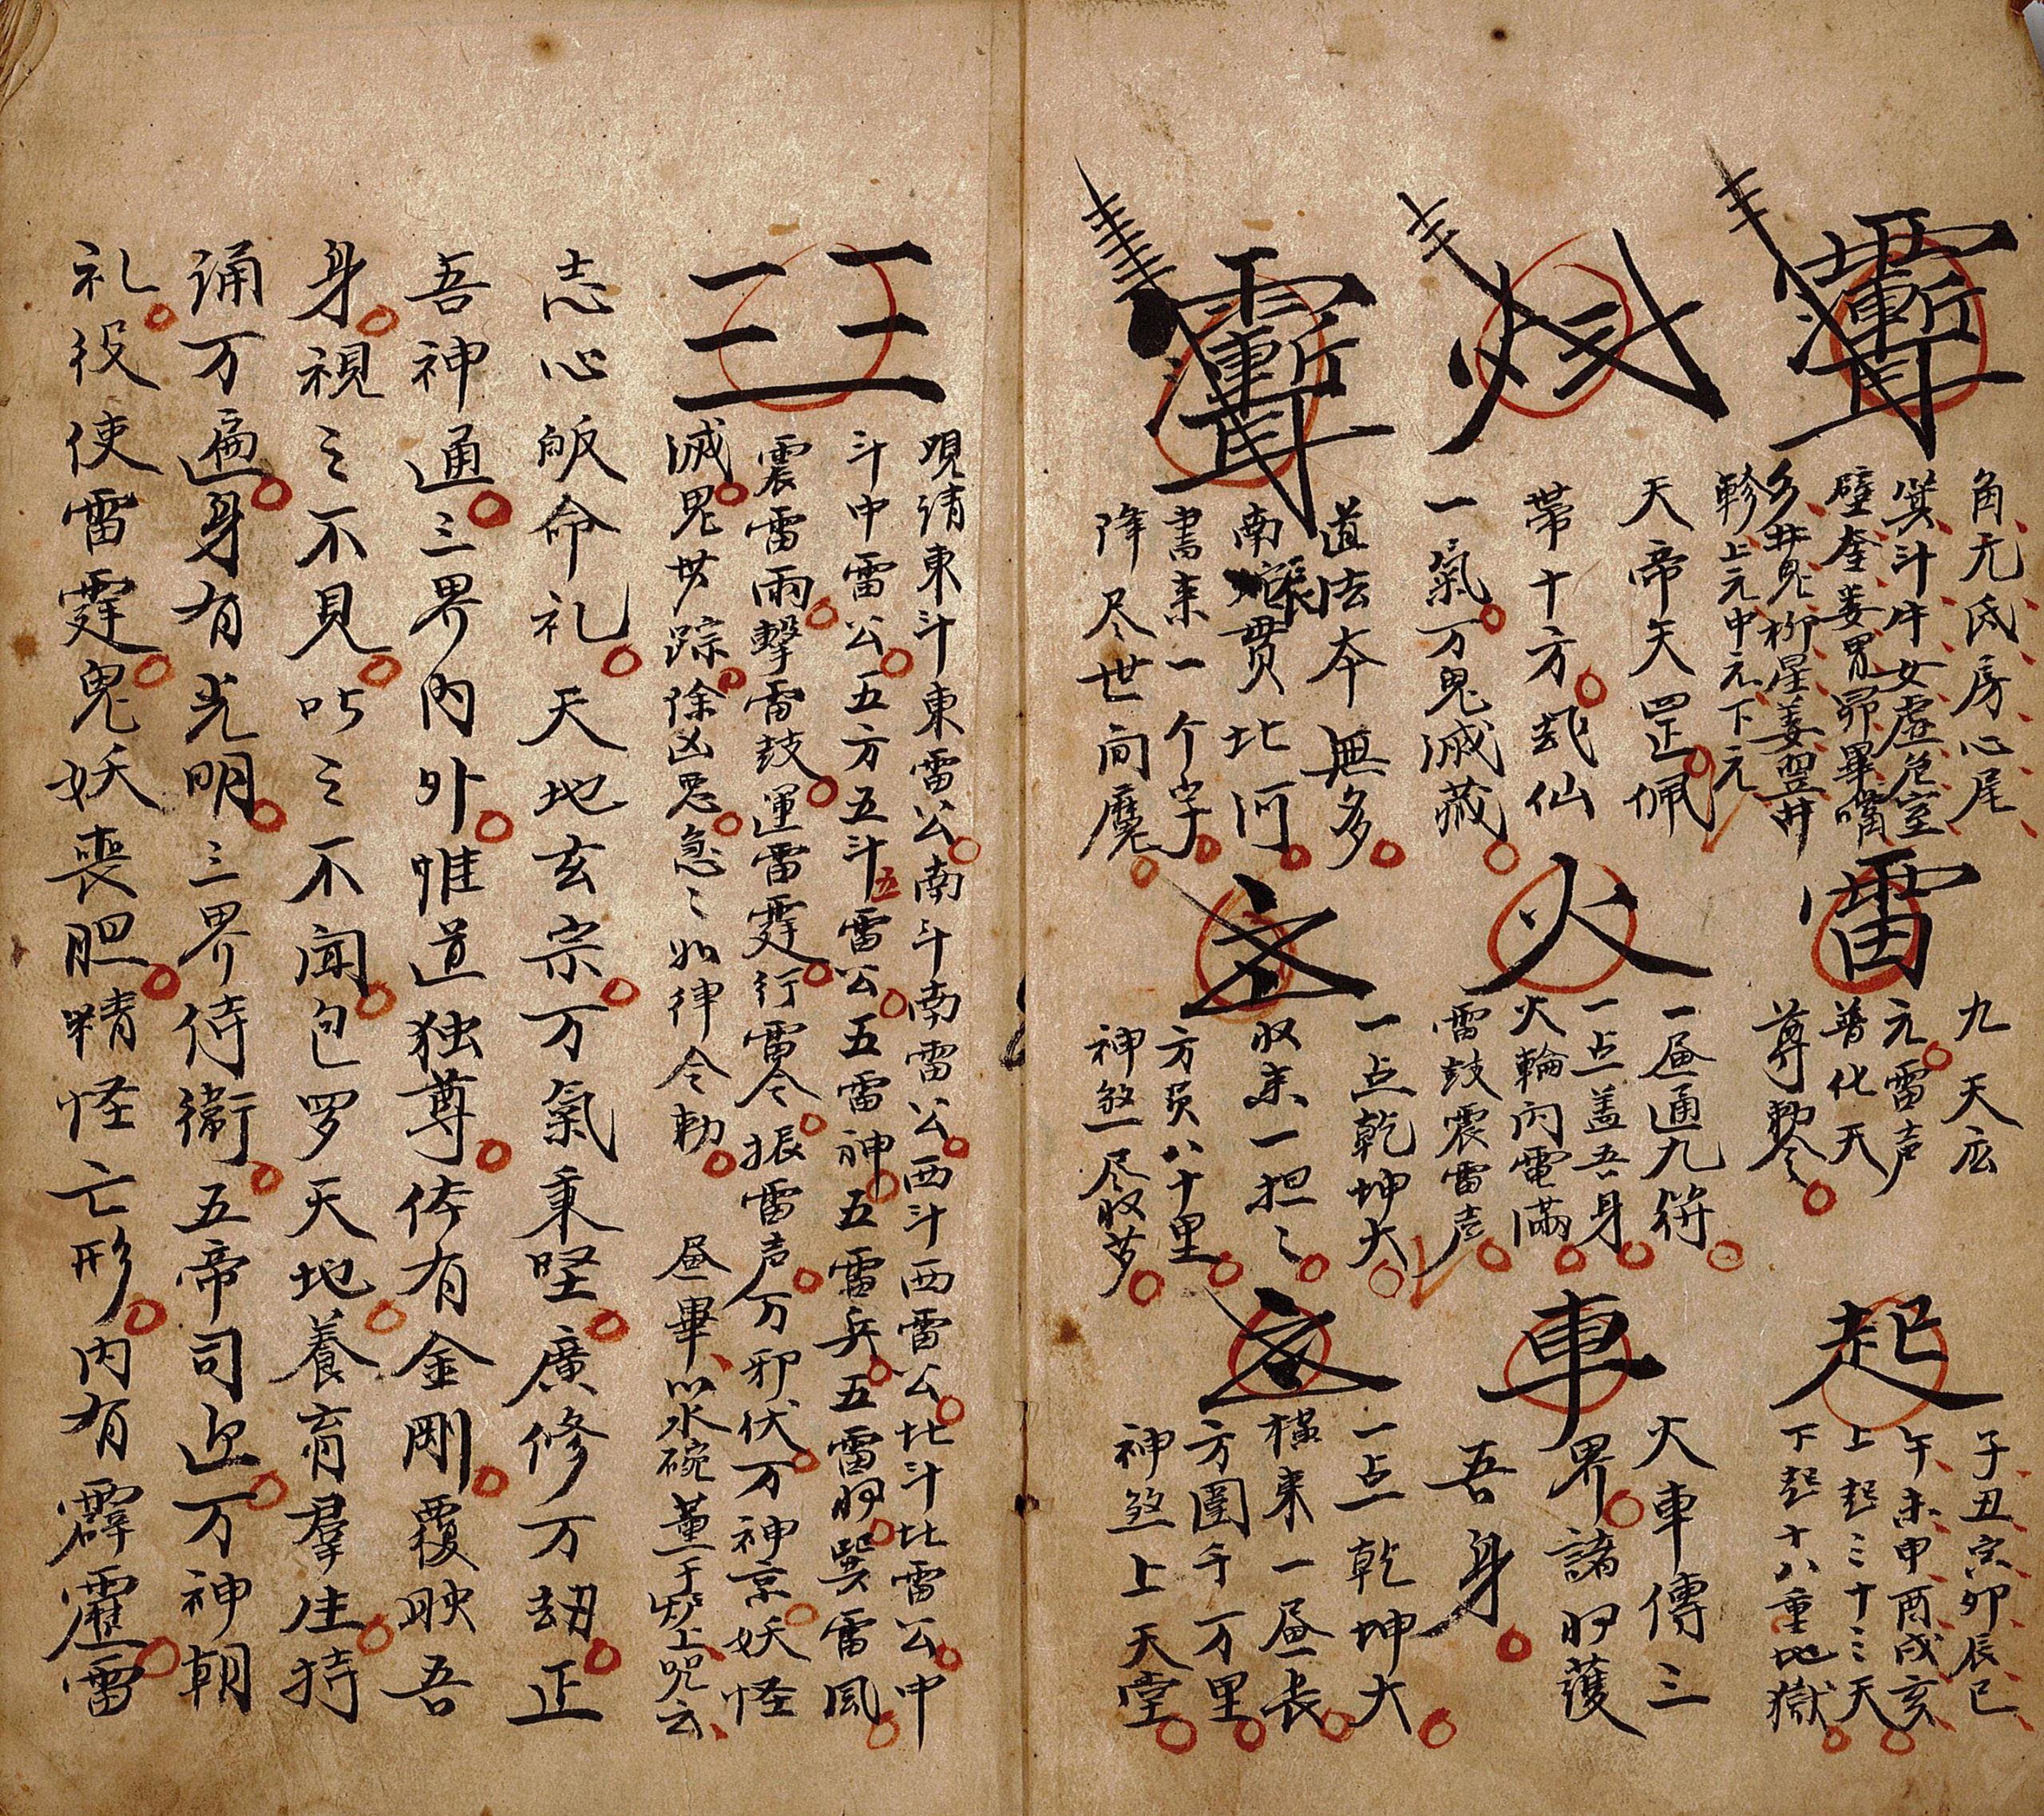 角亢氐房心尾
箕斗牛女虛危室
壁奎婁胃昴畢嘴
參井鬼柳星
軫上元中元下元
雷
九天応
元雷声
普化天
尊勅令
起
子丑寅卯辰巳
午未申酉戌亥
上起三十三天
下起十八重地獄
天帝矢罡佩
帶十方
仙
一氣万鬼滅藏
火
一畫通九
一点盖吾身
火輪內電滿
雷鼓震雷声
車
火車傳三
界諸將護
吾身
道法本無多
南辰貫北河
書来一个字
降尽世间魔
一点乾坤大
收来一担之
方员八十里
神煞一尽收
一点乾坤大
橫来一畫長
方圓千万里
神煞上天堂
三三
唄請東斗東雷公南斗南雷公西斗西雷公北斗北雷公中
斗中雷公五方五斗五雷公五雷神五雷兵五雷將巽雷風
震雷雨擊雷鼓運雷霆行雷令振雷声万邪伏万神京妖怪
滅鬼世踪除凶恶急之如律令勅 畫畢以水碗薰于炉上咒云
志心皈命礼天地玄宗万氣秉堅廣修万刼正
吾神通三界內外惟道独尊体有金剛覆映吾
身視之不見听之不闻包罗天地養育羣生持
诵万遍身有光明三界侍衛五帝司迎万神朝
礼役使雷霆鬼妖喪胆精怪亡形内有霹靂雷